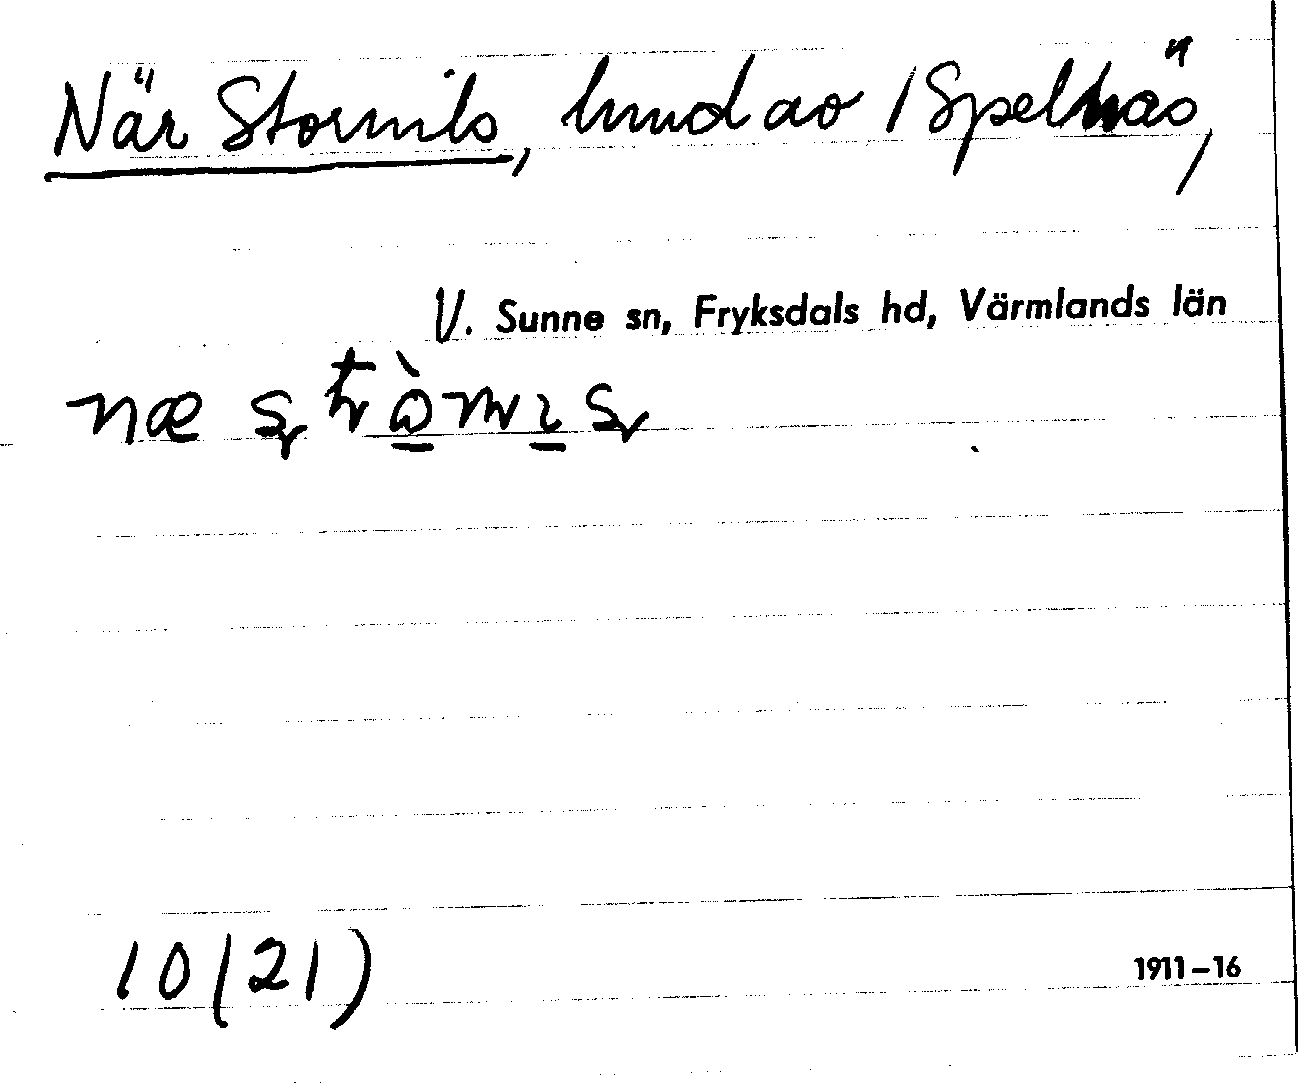 När Stornils, hmd av 1 Spelnäs,
V. Sunne sn, Fryksdals hd, Värmlands län
næ
10(21)
1911-16